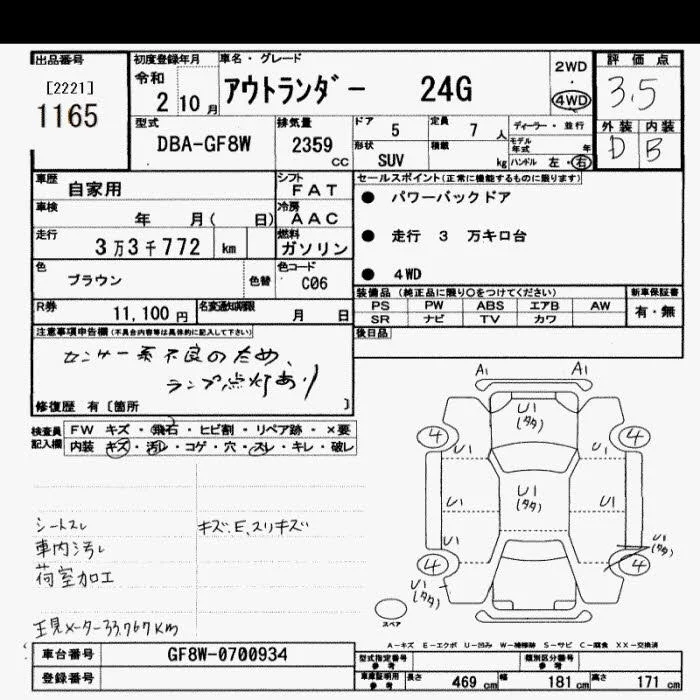 出品番号
[2221]
1165
初度登録年月
令和
2 10 月
車名・グレード
アウトランダー 24G
2WD
・
4WD
評価点
3.5
外装 内装
D B
型式
DBA-GF8W
排気量
2359
CC
ドア 5
定員 7 人
形状
SUV
積載
kg
ディーラー・並行
モデル年式 年
ハンドル 左・右
車歴
自家用
シフト
FAT
車検
年 月( 日)
冷房
AAC
走行
3万3千772 km
燃料
ガソリン
色
ブラウン
色替
色コード
C06
R券
11,100 円
名変通知期限
月 日
セールスポイント(正常に機能するものに限ります)
● パワーバックドア
● 走行 3 万キロ台
● 4WD
装備品(純正品に限り○をつけてください)
PS PW ABS エアB AW
SR ナビ TV カワ
新車保証書
有・無
後日品
注意事項申告欄(不具合内容等は具体的に記入して下さい)
センサー系不良のため、
ランプ点灯あり
修復歴 有〔箇所 〕
検査員
記入欄
FW キズ・飛石・ヒビ割・リペア跡・×要
内装 キズ・汚レ・コゲ・穴・スレ・キレ・破レ
シートスレ
キズ.E.スリキズ
車内汚レ
荷室加工
メーター33,767Km
A1 A1
U1
(タタ)
4 4
U1 U1
U1 U1 U1
(タタ)
U1 U1
(タタ)
4 4
U1
(タタ)
スペア
A−キズ E−エクボ U−凹み W−補修跡 S−サビ C−腐食 XX−交換済
車台番号
GF8W-0700934
登録番号
型式指定番号
参考
類別区分番号
参考
車庫証明用
参考
長さ 469 cm 幅 181 cm 高さ 171 cm